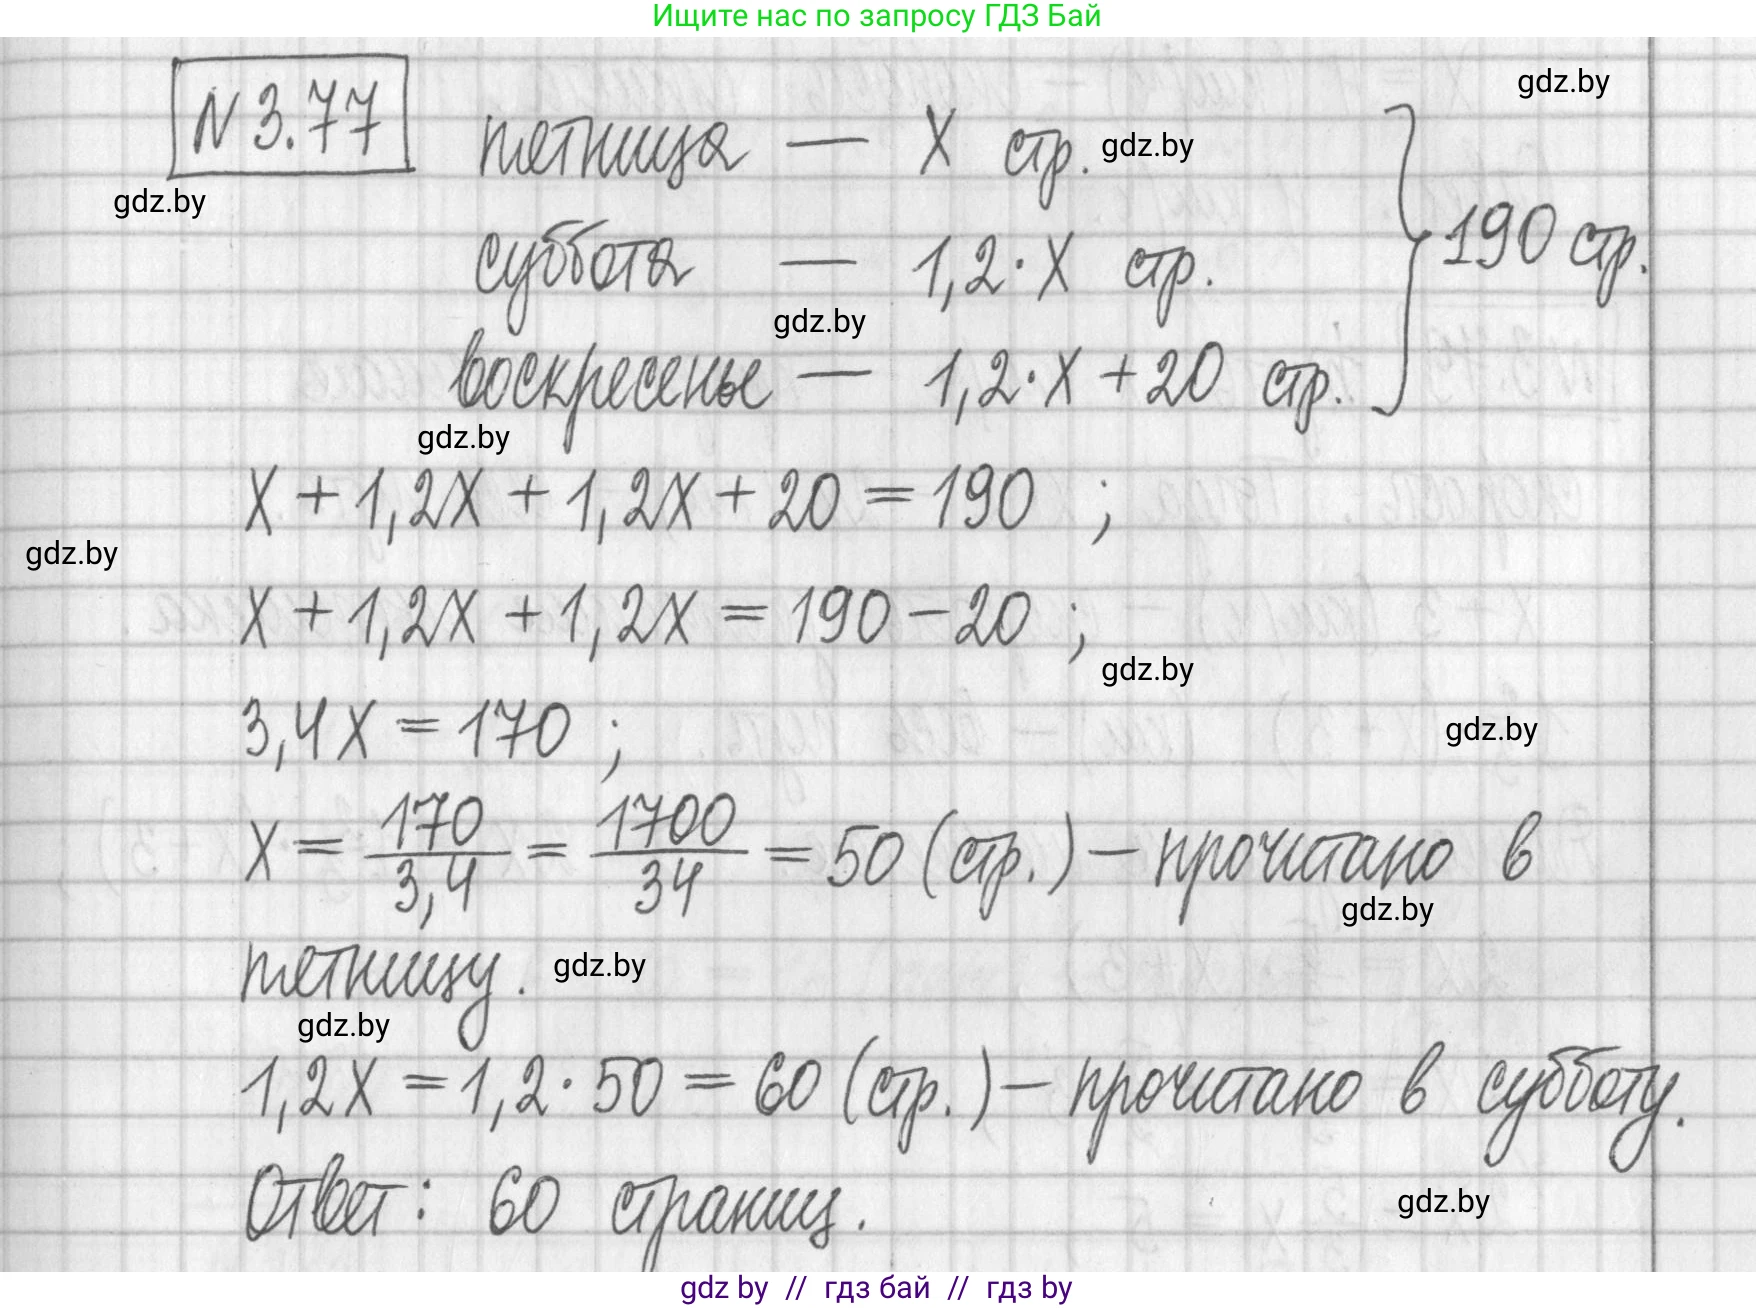 Ищите нас по запросу ГДЗ Бай
gdz.by
N 3.77
пятница — X стр. gdz.by
gdz.by
суббота — 1,2·X стр.
190 стр.
gdz.by
воскресенье — 1,2·X + 20 стр.
gdz.by
X + 1,2X + 1,2X + 20 = 190 ;
gdz.by
X + 1,2X + 1,2X = 190 - 20 ;
gdz.by
3,4X = 170 ;
gdz.by
X = 170/3,4 = 1700/34 = 50 (стр.) - прочитано в
gdz.by
пятницу. gdz.by
gdz.by
1,2X = 1,2·50 = 60 (стр.) - прочитано в субботу.
Ответ: 60 страниц.
gdz.by
gdz by // гдз бай // гдз by